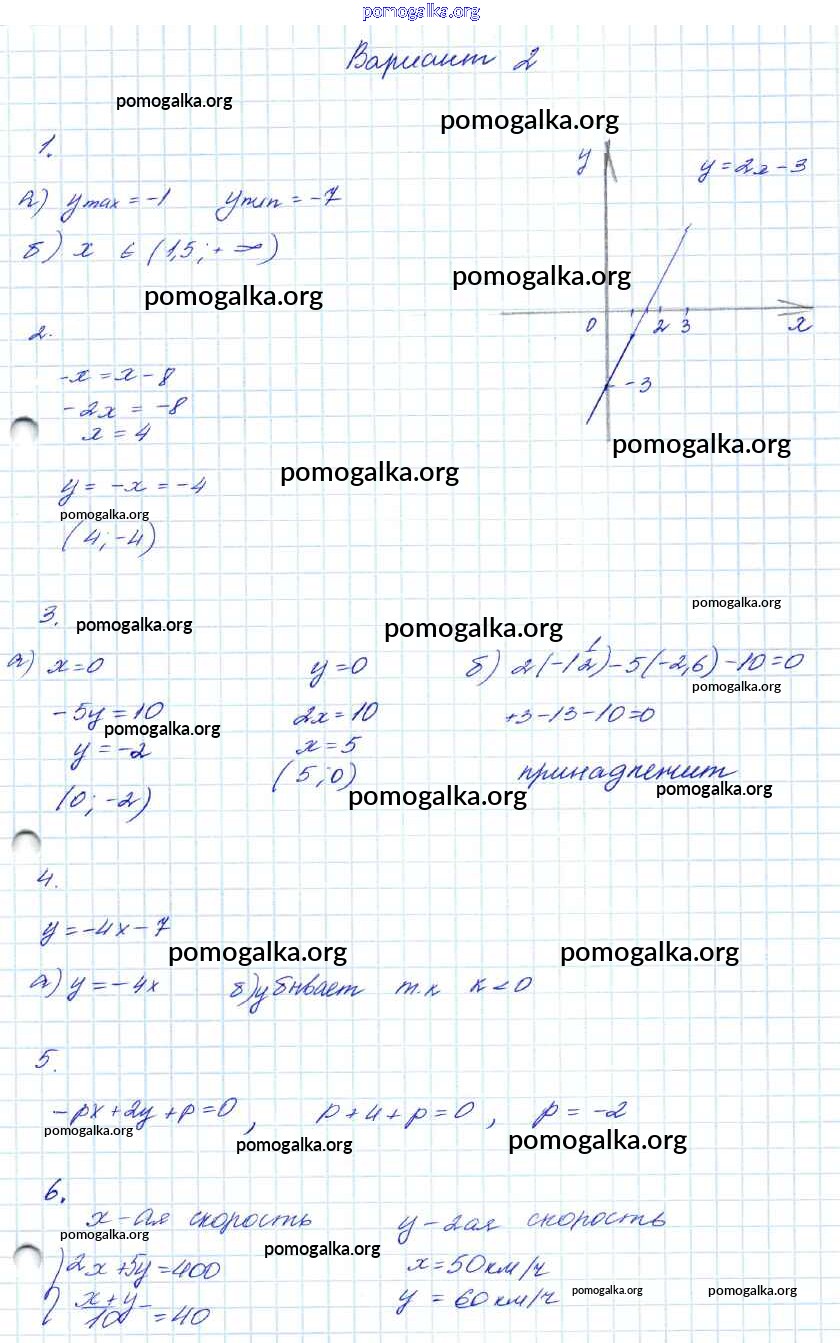 pomogalka.org
Вариант 2
pomogalka.org
pomogalka.org
1.
а) y max = -1 y min = -7
y y = 2x - 3
б) x ∈ (1,5; +∞)
pomogalka.org
pomogalka.org
0 2 3 x
-3
2.
-x = x - 8
-2x = -8
x = 4
pomogalka.org
pomogalka.org
y = -x = -4
pomogalka.org
(4; -4)
pomogalka.org
3.
pomogalka.org
pomogalka.org
а) x=0 y=0 б) 2(-1 1/2) - 5(-2,6) - 10 = 0
pomogalka.org
-5y = 10 2x = 10 +3 - 13 - 10 = 0
pomogalka.org
y = -2 x = 5
(0; -2) (5; 0) принадлежит
pomogalka.org
pomogalka.org
4.
y = -4x - 7
pomogalka.org
pomogalka.org
а) y = -4x б) убывает т.к k < 0
5.
-px + 2y + p = 0, p + 4 + p = 0, p = -2
pomogalka.org
pomogalka.org
pomogalka.org
6.
x - ая скорость y - 2ая скорость
pomogalka.org
pomogalka.org
2x + 5y = 400 x = 50 км/ч
x + y / 10 = 40 y = 60 км/ч
pomogalka.org
pomogalka.org